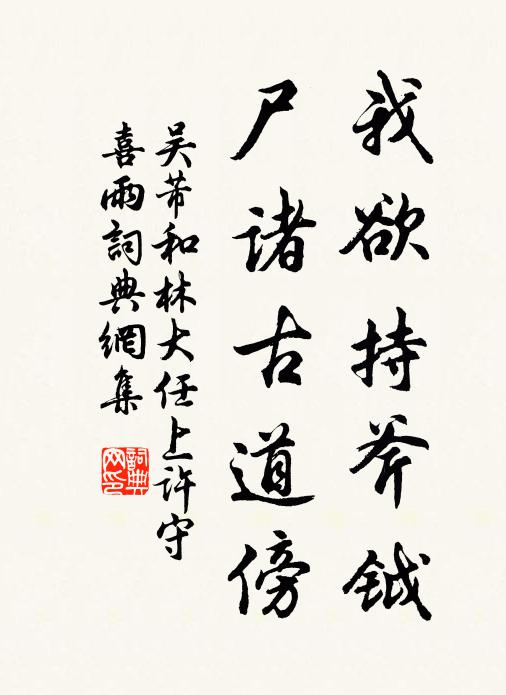 我欲持斧鉞
尸诸古道傍
吴芾和林大任上许守
喜雨詞典網集
詞典网印